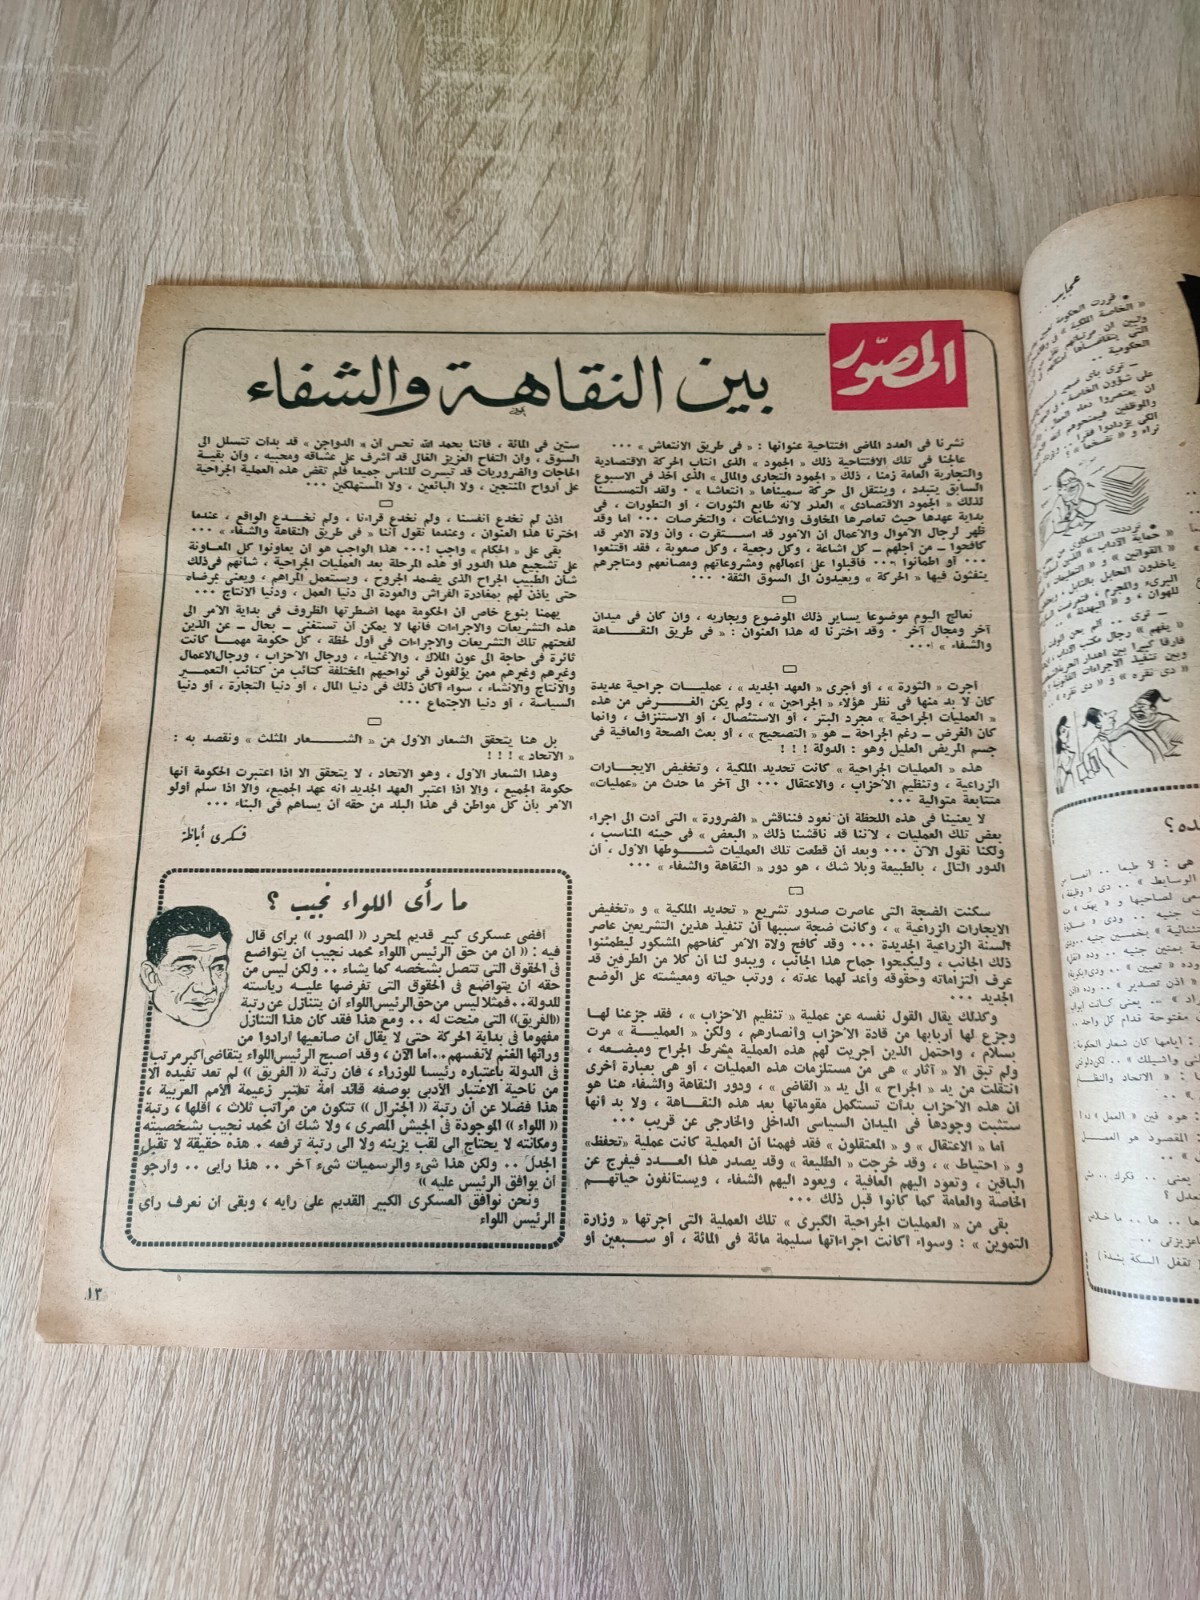 المصور
بين النقاهة والشفاء
نشرنا فى العدد الماضى افتتاحية عنوانها : « فى طريق الانتعاش » ...
عالجنا فى تلك الافتتاحية ذلك « الجمود » الذى انتاب الحركة الاقتصادية
والتجارية العامة زمنا ، ذلك « الجمود التجارى والمالى » الذى أخذ فى الاسبوع
السابق يتبدد ، وينتقل الى حركة سميناها « انتعاشا » . ولقد التمسنا
لذلك « الجمود الاقتصادى » العذر لأنه طابع الثورات ، أو التطورات ، فى
بداية عهدها حيث تعاصرها المخاوف والاشاعات ، والتخرصات ... أما وقد
ظهر لرجال الاموال والاعمال أن الامور قد استقرت ، وأن ولاة الامر قد
كافحوا – من أجلهم – كل اشاعة ، وكل رجعية ، وكل صعوبة ، فقد اقتنعوا
... أو اطمأنوا ... فأقبلوا على أعمالهم ومشروعاتهم ومصانعهم ومتاجرهم
ينفثون فيها « الحركة » ويعيدون الى السوق الثقة ...
نعالج اليوم موضوعا يساير ذلك الموضوع ويجاريه ، وان كان فى ميدان
آخر ومجال آخر . وقد اخترنا له هذا العنوان : « فى طريق النقاهة
والشفاء » ...
أجرت « الثورة » ، أو أجرى « العهد الجديد » ، عمليات جراحية عديدة
كان لا بد منها فى نظر هؤلاء « الجراحين » ، ولم يكن الغرض من هذه
« العمليات الجراحية » مجرد البتر ، أو الاستئصال ، أو الاستنزاف ، وانما
كان الغرض – رغم الجراحة – هو « التصحيح » ، أو بعث الصحة والعافية فى
جسم المريض العليل وهو : الدولة ! ! !
هذه « العمليات الجراحية » كانت تحديد الملكية ، وتخفيض الايجارات
الزراعية ، وتنظيم الاحزاب ، والاعتقال ... الى آخر ما حدث من « عمليات »
متتابعة متوالية ...
لا يعنينا فى هذه اللحظة أن نعود فنناقش « الضرورة » التى أدت الى اجراء
بعض تلك العمليات ، لأننا قد ناقشنا ذلك « البعض » فى حينه المناسب ،
ولكنا نقول الآن ... وبعد أن قطعت تلك العمليات شوطها الاول ، أن
الدور التالى ، بالطبيعة وبلا شك ، هو دور « النقاهة والشفاء » ...
سكنت الضجة التى عاصرت صدور تشريع « تحديد الملكية » و « تخفيض
الايجارات الزراعية » ، وكانت ضجة سببها أن تنفيذ هذين التشريعين عاصر
السنة الزراعية الجديدة ... وقد كافح ولاة الامر كفاحهم المشكور ليطمئنوا
ذلك الجانب ، وليكبحوا جماح هذا الجانب ، ويبدو لنا أن كلا من الطرفين قد
عرف التزاماته وحقوقه وأعد لهما عدته ، ورتب حياته ومعيشته على الوضع
الجديد ...
وكذلك يقال القول نفسه عن عملية « تنظيم الاحزاب » ، فقد جزعنا لها
وجزع لها أربابها من قادة الاحزاب وأنصارهم ، ولكن « العملية » مرت
بسلام ، واحتمل الذين أجريت لهم هذه العملية مشرط الجراح ومبضعه ،
ولم تبق الا « آثار » هى من مستلزمات هذه العمليات ، أو هى بعبارة أخرى
انتقلت من يد « الجراح » الى يد « القاضى » ، ودور النقاهة والشفاء هنا هو
أن هذه الاحزاب بدأت تستكمل مقوماتها بعد هذه النقاهة ، ولا بد أنها
ستثبت وجودها فى الميدان السياسى الداخلى والخارجى عن قريب ...
أما « الاعتقال » و « المعتقلون » فقد فهمنا أن العملية كانت عملية « تحفظ »
و « احتياط » ، وقد خرجت « الطليعة » وقد يصدر هذا العدد فيفرج عن
الباقين ، وتعود اليهم العافية ، ويعود اليهم الشفاء ، ويستأنفون حياتهم
الخاصة والعامة كما كانوا قبل ذلك ...
بقى من « العمليات الجراحية الكبرى » تلك العملية التى أجرتها « وزارة
التموين » : وسواء أكانت اجراءاتها سليمة مائة فى المائة ، أو سبعين أو
ستين فى المائة ، فاننا بحمد الله نحس أن « الدواجن » قد بدأت تتسلل الى
السوق ، وأن التفاح العزيز الغالى قد أشرف على عشاقه ومحبيه ، وأن بقية
الحاجات والضروريات قد تيسرت للناس جميعا فلم تقض هذه العملية الجراحية
على أرواح المنتجين ، ولا البائعين ، ولا المستهلكين ...
اذن لم نخدع أنفسنا ، ولم نخدع قراءنا ، ولم نخدع الواقع ، عندما
اخترنا هذا العنوان ، وعندما نقول أننا « فى طريق النقاهة والشفاء » ...
بقى على « الحكام » واجب ! ... هذا الواجب هو أن يعاونوا كل المعاونة
على تشجيع هذا الدور أو هذه المرحلة بعد العمليات الجراحية ، شأنهم فى ذلك
شأن الطبيب الجراح الذى يضمد الجروح ، ويستعمل المراهم ، ويعنى بمرضاه
حتى يأذن لهم بمغادرة الفراش والعودة الى دنيا العمل ، ودنيا الانتاج ...
يهمنا بنوع خاص أن الحكومة مهما اضطرتها الظروف فى بداية الامر الى
هذه التشريعات والاجراءات فانها لا يمكن أن تستغنى – بحال – عن الذين
لفحتهم تلك التشريعات والاجراءات فى أول لحظة ، كل حكومة مهما كانت
ثائرة فى حاجة الى عون الملاك ، والاغنياء ، ورجال الاحزاب ، ورجال الاعمال
وغيرهم وغيرهم ممن يؤلفون فى نواحيهم المختلفة كتائب من كتائب التعمير
والانتاج والانشاء ، سواء أكان ذلك فى دنيا المال ، أو دنيا التجارة ، أو دنيا
السياسة ، أو دنيا الاجتماع ...
بل هنا يتحقق الشعار الاول من « الشعار المثلث » ونقصد به :
« الاتحاد » ! ! !
وهذا الشعار الاول ، وهو الاتحاد ، لا يتحقق الا اذا اعتبرت الحكومة أنها
حكومة الجميع ، والا اذا اعتبر العهد الجديد أنه عهد الجميع ، والا اذا سلم أولو
الامر بأن كل مواطن فى هذا البلد من حقه أن يساهم فى البناء ...
فكرى أباظة
ما رأى اللواء نجيب ؟
أفضى عسكرى كبير قديم لمحرر « المصور » برأى قال
فيه : « ان من حق الرئيس اللواء محمد نجيب أن يتواضع
فى الحقوق التى تتصل بشخصه كما يشاء .. ولكن ليس من
حقه أن يتواضع فى الحقوق التى تفرضها عليه رياسته
للدولة .. فمثلا ليس من حق الرئيس اللواء أن يتنازل عن رتبة
« الفريق » التى منحت له .. ومع هذا فقد كان هذا التنازل
مفهوما فى بداية الحركة حتى لا يقال أن صانعيها أرادوا من
ورائها الغنم لأنفسهم .. أما الآن ، وقد أصبح الرئيس اللواء يتقاضى أكبر مرتب
فى الدولة باعتباره رئيسا للوزراء ، فان رتبة « الفريق » لم تعد تفيده الا
من ناحية الاعتبار الأدبى بوصفه قائد أمة تعتبر زعيمة الأمم العربية ،
هذا فضلا عن أن رتبة « الجنرال » تتكون من مراتب ثلاث ، أقلها ، رتبة
« اللواء » الموجودة فى الجيش المصرى ، ولا شك أن محمد نجيب بشخصيته
ومكانته لا يحتاج الى لقب يزينه ولا الى رتبة ترفعه . هذه حقيقة لا تقبل
الجدل .. ولكن هذا شىء والرسميات شىء آخر .. هذا رأيى .. وأرجو
أن يوافق الرئيس عليه »
ونحن نوافق العسكرى الكبير القديم على رأيه ، وبقى أن نعرف رأى
الرئيس اللواء
١٣
عجايب ..